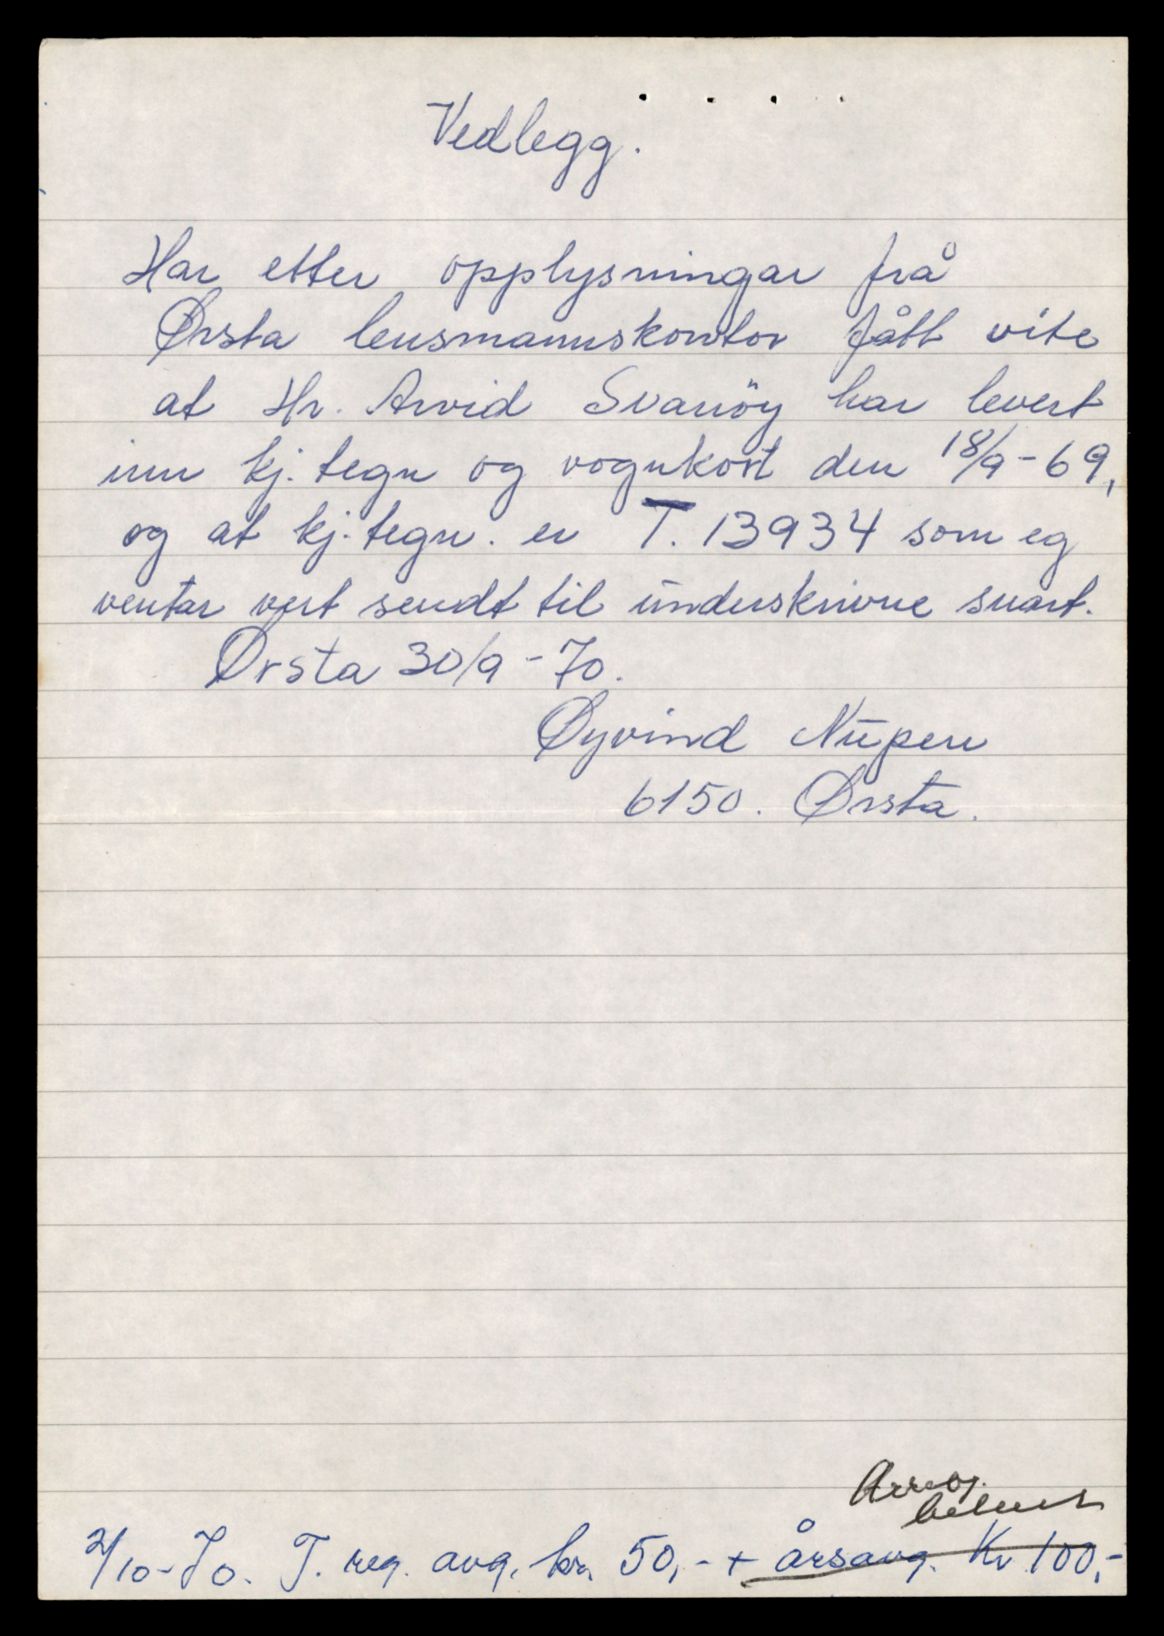 Vedlegg.
Har etter opplysningar frå
Ørsta lensmannskontor fått vite
at Hr. Arvid Svanöy har levert
inn kj. tegn og vognkort den 18/9-69,
og at kj. tegn. er T. 13934 som eg
ventar vert sendt til underskrivne snart.
Ørsta 30/9-70.
Øyvind Nupen
6150. Ørsta.
2/10-70. T. reg. avg. kr. 50,- + årsavg. Kr 100,-